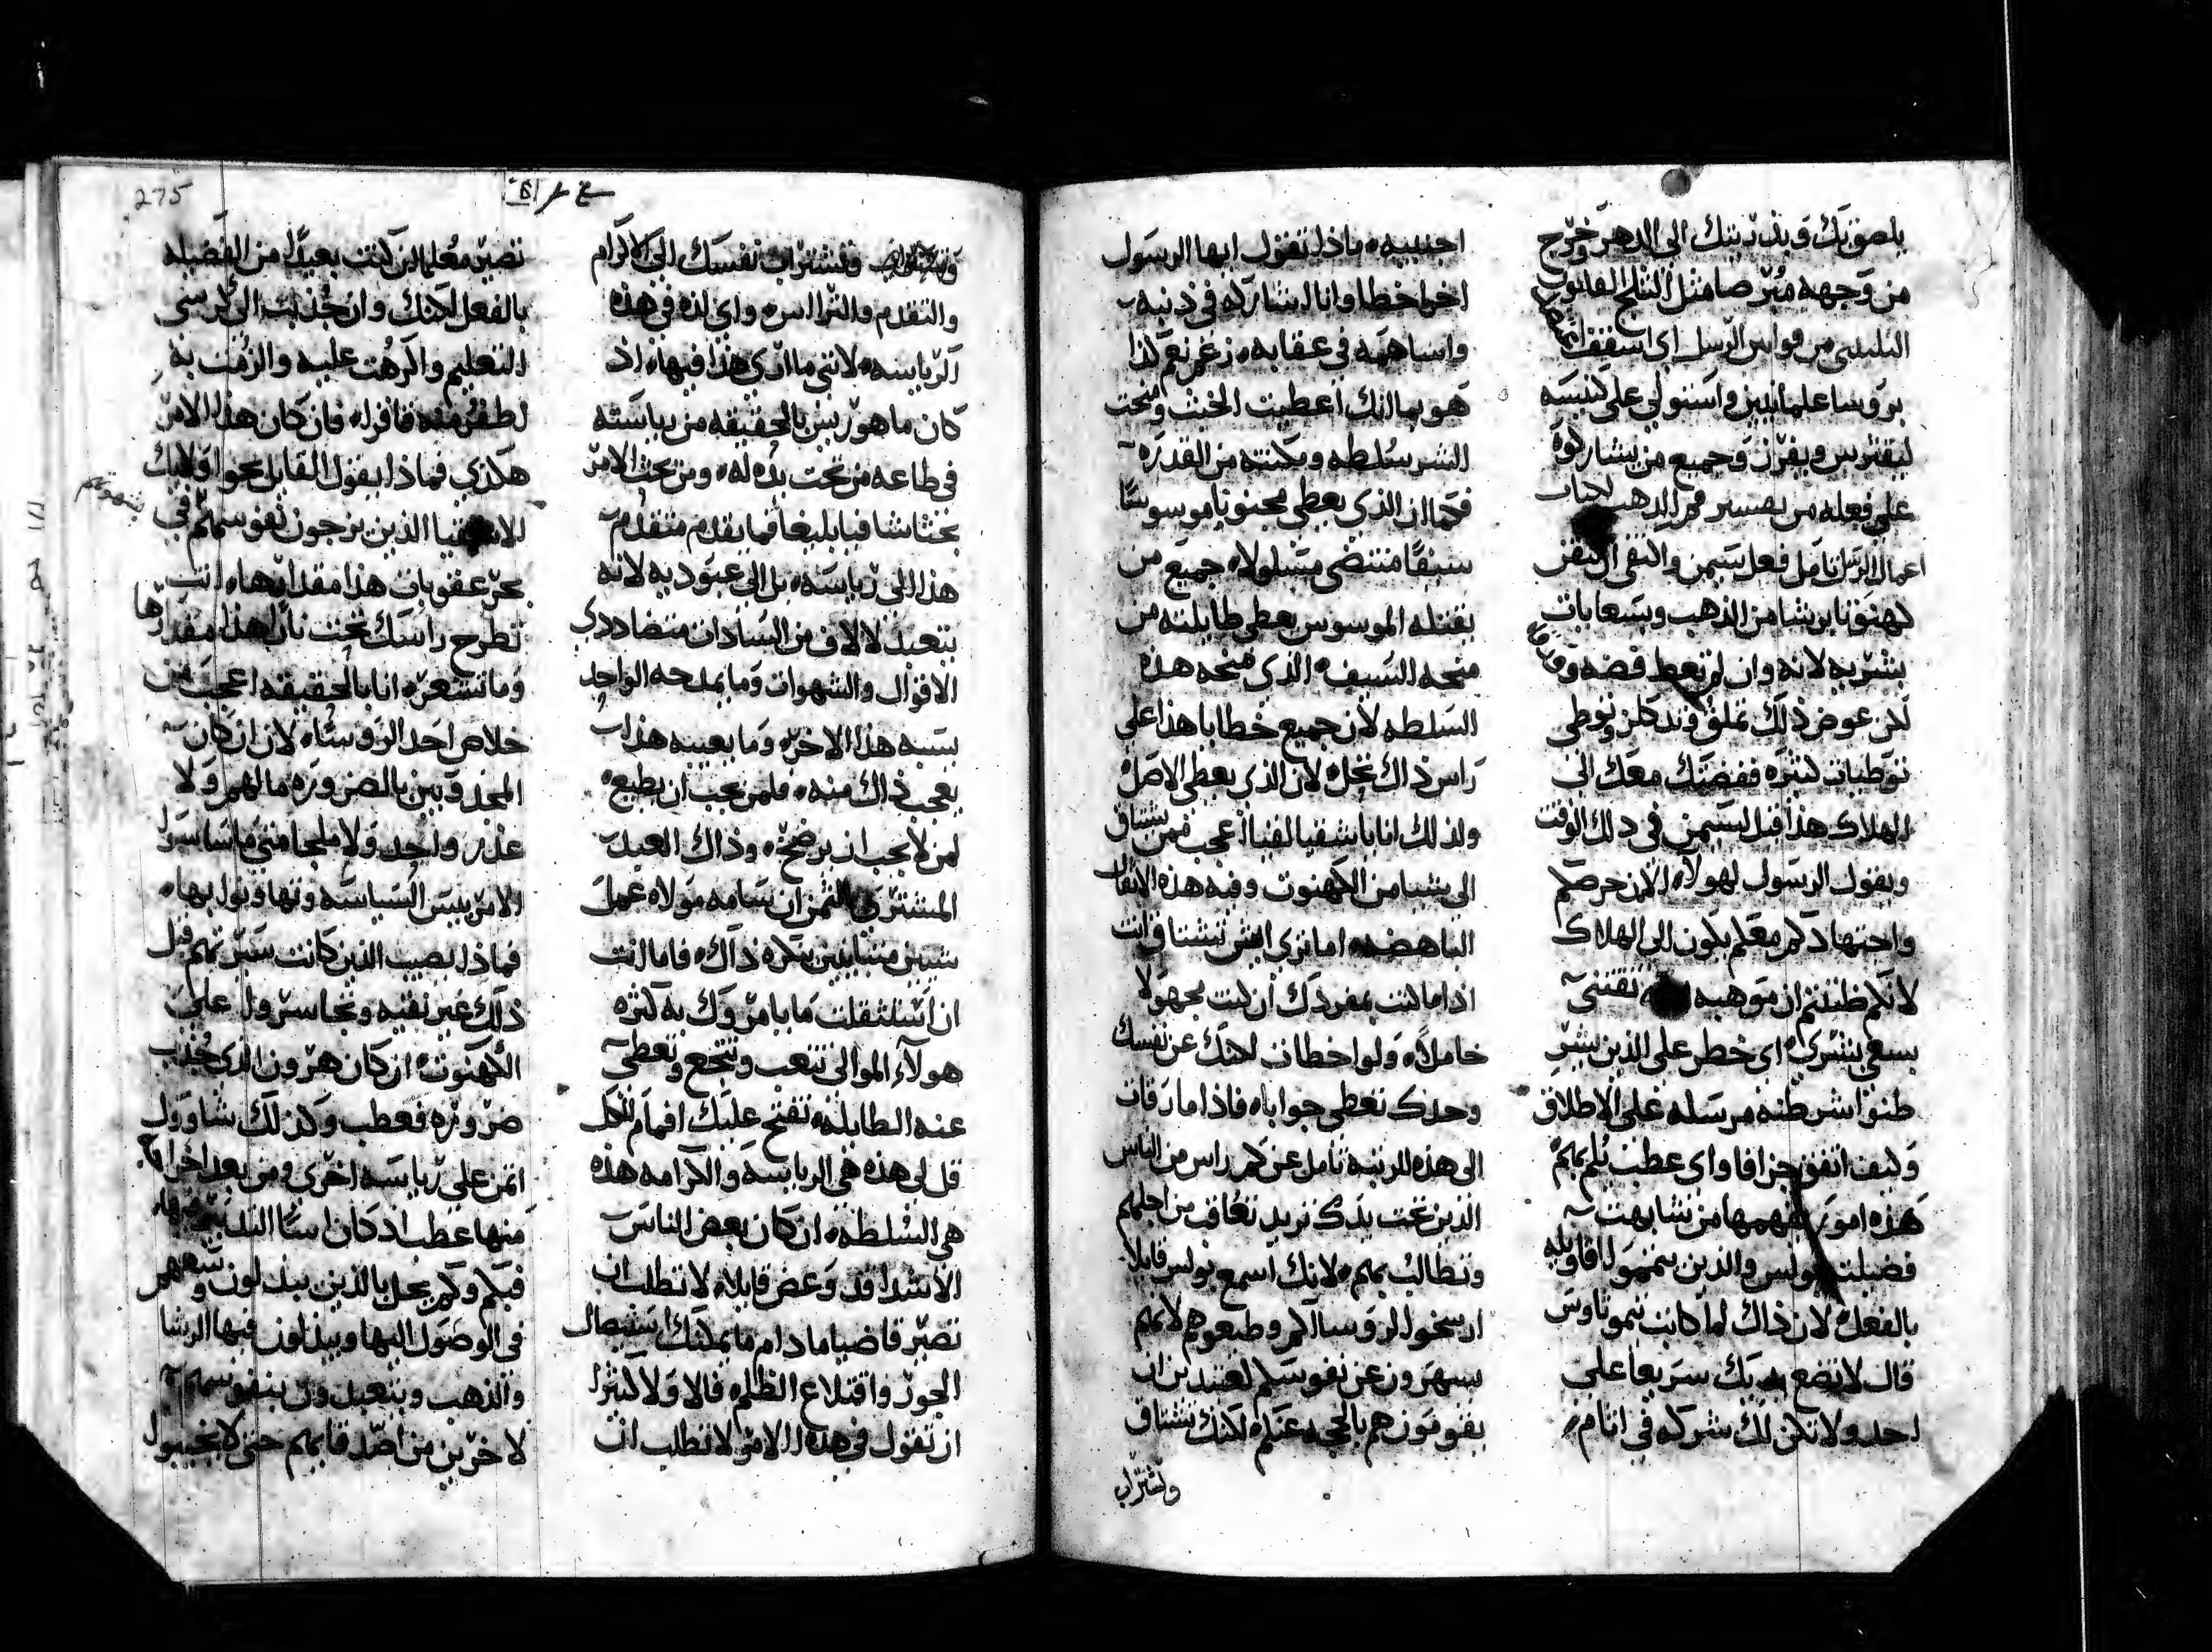 يلصق بك وبذريتك الى الدهر وخرج
من وجهه مبرصا مثل الثلج القانون
الثلثين من قوانين الرسل اي اسقف
بروسا علمانيين واستولي على كنيسه
ليقترس ويفرز وجميع من يشاركوه
على فعله من تفسير فم الدهب لكتاب
اعمال الرسل تامل فعل سيمن
كهنوتا برشا من الذهب وبسعايات
يشتريه لانه وان لم تعط فضه
لكن عوض ذلك تملق وتدكلن وتوطي
توطيات كثيره ففضتك معك الى
الهلاك هذا قيل لسيمن في ذلك الوقت
ويقول الرسول لهولاء الان حرصكم
واجتهادكم معكم يكون الى الهلاك
لانكم ظننتم ان موهبة الله تقتنى
بسعي بشري اي خطر على الذين
ظنوا شرطنه مرسله على الاطلاق
وكيف اتفق جزافا واي عطب يلم بهم
هذه امور يفهمها من تشابهت
فضيلته بولس والذين سمعوا اقاويله
بالفعل لان ذاك لما كاتب تيموتاوس
قال لا تضع يدك سريعا على
احد ولا تكن لك شركه في اثام
اجنبيه ماذا تقول ايها الرسول
اخر اخطا وانا اشاركه في ذنبه
واساهمه في عقابه زعم نعم لذا
هو بما انك اعطيت الخبث ومنحت
الشر سلطه ومكنته من القدره
فكما ان الذي يعطي مجنونا موسوسا
سيفا منتضى مسلولا جميع من
يقتله الموسوس يعطي طايلته من
منحه السيف الذي منحه هذه
السلطه لان جميع خطايا هذا على
راس ذاك تحل لان الذي يعطي الاصل
ولذلك انا يا اشقيا لفينا اعجب فمن يشتاق
الى يشيا من الكهنوت وفيه هذه الاثقال
الباهضه اما ترى اليش تشتاق انت
اذا ما كنت بمفردك ان كنت مجهولا
خاملا ولو اخطات لكنك عن نفسك
وحدك تعطي جوابا فاذا ما رقات
الى هذه الرتبه تامل عن كم راس من الناس
الذين تحت يدك تريد تعاقب من اجلهم
وتطالب بهم لانك اسمع بولس قايلا
ارسخوا لروساكم وطيعوهم لانهم
يسهرون عن نفوسكم لعتيدين ان
يقومون هم بالحجه عنكم لكنك تشتاق
وتشتراب
وتشتراب نفسك الى الاكرام
والتقدم والتراس واي لذه في هذه
الرياسه لانني ما ارى هذا فيها اذ
كان ما هو ريس بالحقيقه من رياسته
في طاعه من تحت يده له ومن تحت الامر
بحثا شافيا بليغا فما يقدم متقدم
هذا الى رياسه بل الى عبوديه لانه
يتعبد لالاف من السادات متضاددي
الاقوال والشهوات وما يمدحه الواحد
يسبه هذا الاخر وما يعيبه هذا
يعجب ذاك منه فلمن يجب ان يطيع
لمن لا يجب ان يرضخ وذاك العبد
المشترى بالثمن ان سامه مولاه عمل
شيين متنافيين يكره ذاك فاما انت
ان استثقلت ما يامروك به كثره
هولاء الموالي تتعب وتتجع وتعطي
عنه الطايله تفتح عليك افمام الكل
قل لي هذه هي الرياسه والكرامه هذه
هي السلطه ان كان بعض الناس
الاشدا قد وعض قايلا لا تطلب ان
تصير قاضيا مادام ما يمكنك استيصال
الجور واقتلاع الظلم فالاولا كثيرا
ان تقول في هذه الامور لا تطلب ان
275
تصير معلما ان كنت بعيدا من الفضيله
بالفعل لكنك وان جذبت الى كرسي
التعليم واكرهت عليه والزمت به
لطفر منه فافرا فان كان هذا الامر
هكذي فماذا يقول القايل نحو اوليك
الاشقيا الذين يزجون نفوسهم في
بحر عقوبات هذا مقدارها انت
تطرح راسك تحت نار هذا مقدارها
وما تشعر انا بالحقيقه اعجب من
خلاص احد الروسا لان ان كان
المجذوبين بالضروره ما لهم ولا
عذر واحد ولا ملجا متى ما ساسوا
الامر بيس السياسه وتهاونوا بها
فماذا يصيب الذين كانت سيرتهم قبل
ذلك غير نقيه وتجاسروا على
الكهنوت ان كان هرون الذي جذب
ضروره فعطب وكذلك شاوول
اتمن على رياسه اخرى ومن بعد
منها عطب اذ كان اسا التدبير فيها
فبكم وكم يحل بالذين يبذلون وسعهم
في الوصول اليها ويبذلون فيها الرشا
والذهب ويتعبدون بنفوسهم
لاخرين من اصدقايهم حتى لا يخيبوا